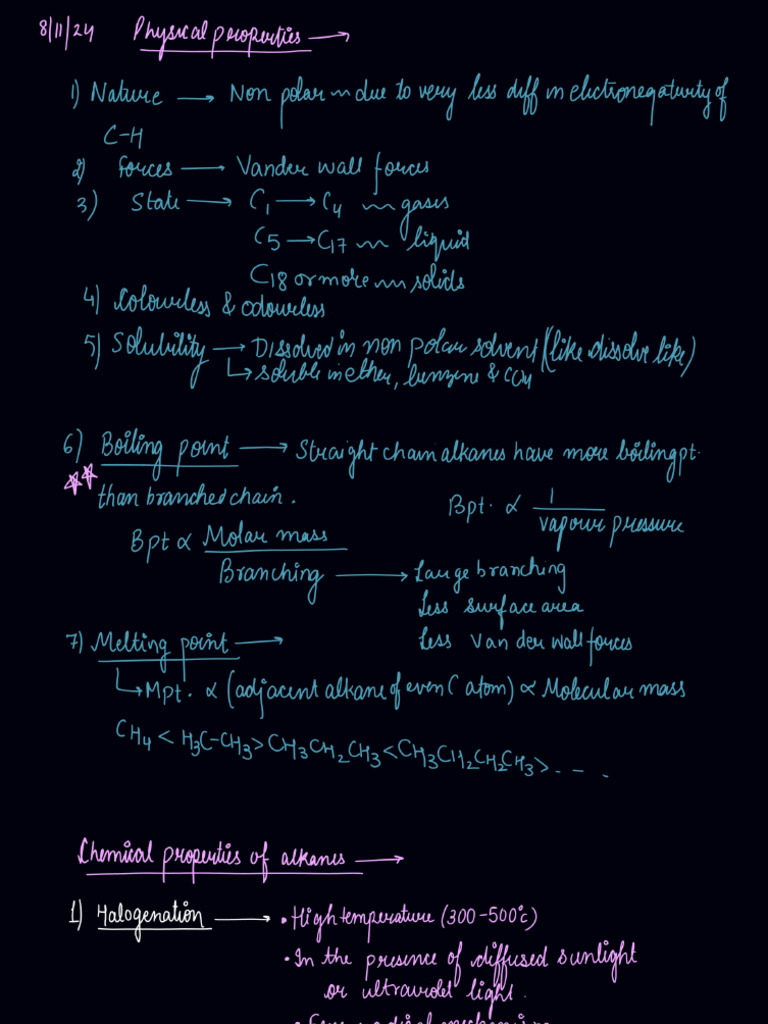 8/11/24 Physical properties →
1) Nature → Non polar ~ due to very less diff in electronegaturity of
C-H
2) Forces → Vander wall forces
3) State → C₁ → C₄ ~ gases
C₅ → C₁₇ ~ liquid
C₁₈ or more ~ solids
4) Colourless & odourless
5) Solubility → Dissolved in non polar solvent (like dissolve like)
↳ soluble in ether, benzene & CCl₄
6) Boiling point → Straight chain alkanes have more boiling pt.
than branched chain.
Bpt. ∝ 1 / vapour pressure
Bpt ∝ Molar mass / Branching → Large branching
Less surface area
Less Van der wall forces
7) Melting point →
↳ Mpt. ∝ (adjacent alkane of even C atom) ∝ Molecular mass
CH₄ < H₃C-CH₃ > CH₃CH₂CH₃ < CH₃CH₂CH₂CH₃ > ....
Chemical properties of alkanes →
1) Halogenation → • High temperature (300-500°c)
• In the presence of diffused sunlight
or ultraviolet light.